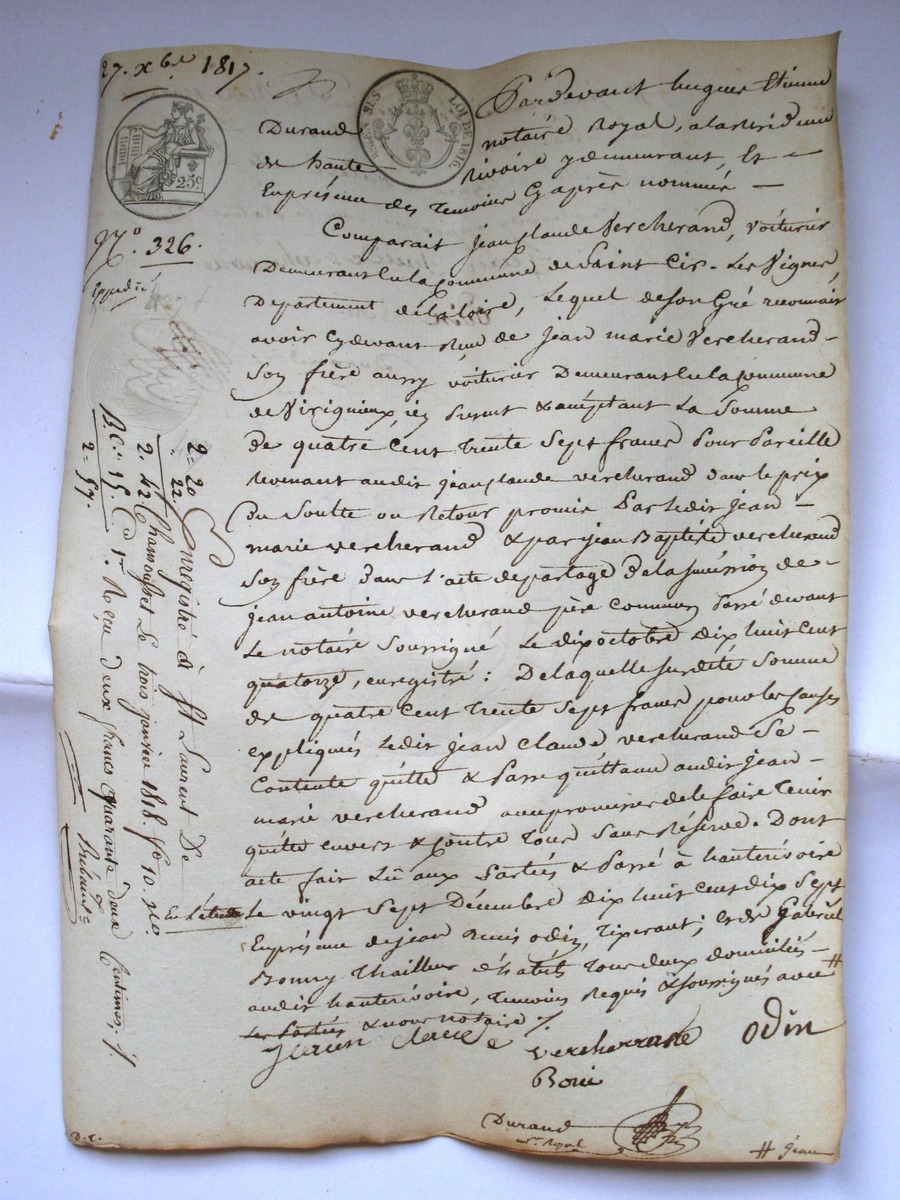 27. Xbre 1817.
25c
TIMBRE SUS LOI DE 1816.
Pardevant hugues Etienne
Durand notaire Royal, a la residence
de haute Rivoire y demeurant, Et
En présence des temoins Cy après nommés
Comparait jean Claude Vercherand, voiturier
Demeurant En la Commune de Saint Cir-Les Vignes
Departement de la loire, Lequel de Son Gré reconnait
avoir cydevant Reçu de jean marie Vercherand
Son frère aussy voiturier Demeurant En la Commune
de Virigneux, icy present & acceptant La Somme
de quatre Cent trente Sept francs pour pareille
revenant audit jean claude vercherand dans le prix
du Soulte ou Retour promis Par ledit jean
marie vercherand & par jean Baptiste vercherand
Son frère dans l'acte de partage de la Succession de
jean antoine vercherand père Commun passé devant
Le notaire Soussigné Le dix octobre dix huit Cent
quatorze, enregistré : De laquelle Susdite Somme
de quatre Cent trente Sept francs pour les Causes
expliquées ledit jean Claude vercherand Se
Contente quitte & Passe quittance audit jean
marie vercherand avec promesse de le faire tenir
quitte envers & Contre tous Sans Réserve. Dont
acte fait Lû aux Parties & Passé à hauterivoire
En l'étude Le vingt Sept Décembre Dix huit Cent dix Sept
En présence de jean Denis odin, Tixerant ; et de Gabriel
Bonny Thailleur d'habits tous deux domiciliés
audit hauterivoire, temoins Requis & Soussignés avec #
les Parties & nous notaire
vercherrand
odin
Boni
Durand
nre Royal
# jean
D. C.
No. 326.
Expedié
2 = 20
22.
2. 42
Enregistré à St Laurent De
Chamousset Le trois janvier 1818 fo 10 Ro
Cn 1re Reçu deux francs quarante deux Centimes
2 = 57.